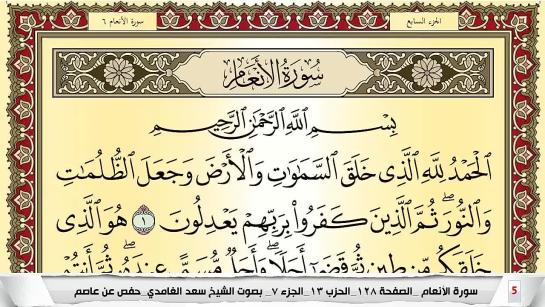 سورة الأنعام ٦
الجزء السابع
سُورَةُ الأَنْعَامِ
بِسْمِ ٱللَّهِ ٱلرَّحْمَٰنِ ٱلرَّحِيمِ
ٱلْحَمْدُ لِلَّهِ ٱلَّذِى خَلَقَ ٱلسَّمَٰوَٰتِ وَٱلْأَرْضَ وَجَعَلَ ٱلظُّلُمَٰتِ
وَٱلنُّورَ ۖ ثُمَّ ٱلَّذِينَ كَفَرُوا۟ بِرَبِّهِمْ يَعْدِلُونَ ١ هُوَ ٱلَّذِى
خَلَقَكُم مِّن طِينٍ ثُمَّ قَضَىٰٓ أَجَلًا ۖ وَأَجَلٌ مُّسَمًّى عِندَهُۥ ۖ ثُمَّ أَنتُمْ
سورة الأنعام _ الصفحة ١٢٨_ الحزب ١٣_ الجزء ٧_ بصوت الشيخ سعد الغامدي_ حفص عن عاصم
5